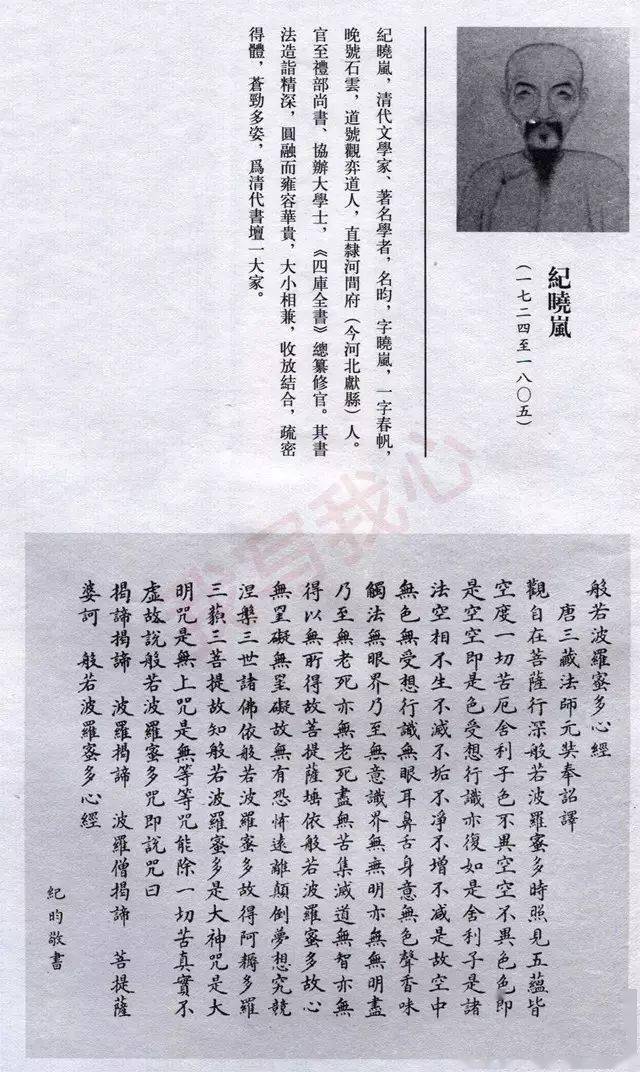 紀曉嵐
（一七二四至一八〇五）
紀曉嵐，清代文學家、著名學者，名昀，字曉嵐，一字春帆，
晚號石雲，道號觀弈道人，直隸河間府（今河北獻縣）人。
官至禮部尚書、協辦大學士，《四庫全書》總纂修官。其書
法造詣精深，圓融而雍容華貴，大小相兼，收放結合，疏密
得體，蒼勁多姿，爲清代書壇一大家。
我写我心
般若波羅蜜多心經
唐三藏法師元奘奉詔譯
觀自在菩薩行深般若波羅蜜多時照見五蘊皆
空度一切苦厄舍利子色不異空空不異色色即
是空空即是色受想行識亦復如是舍利子是諸
法空相不生不滅不垢不净不增不減是故空中
無色無受想行識無眼耳鼻舌身意無色聲香味
觸法無眼界乃至無意識界無無明亦無無明盡
乃至無老死亦無老死盡無苦集滅道無智亦無
得以無所得故菩提薩埵依般若波羅蜜多故心
無罣礙無罣礙故無有恐怖遠離顛倒夢想究竟
涅槃三世諸佛依般若波羅蜜多故得阿耨多羅
三藐三菩提故知般若波羅蜜多是大神咒是大
明咒是無上咒是無等等咒能除一切苦真實不
虛故說般若波羅蜜多咒即說咒曰
揭諦揭諦 波羅揭諦 波羅僧揭諦 菩提薩
婆訶 般若波羅蜜多心經
紀昀敬書